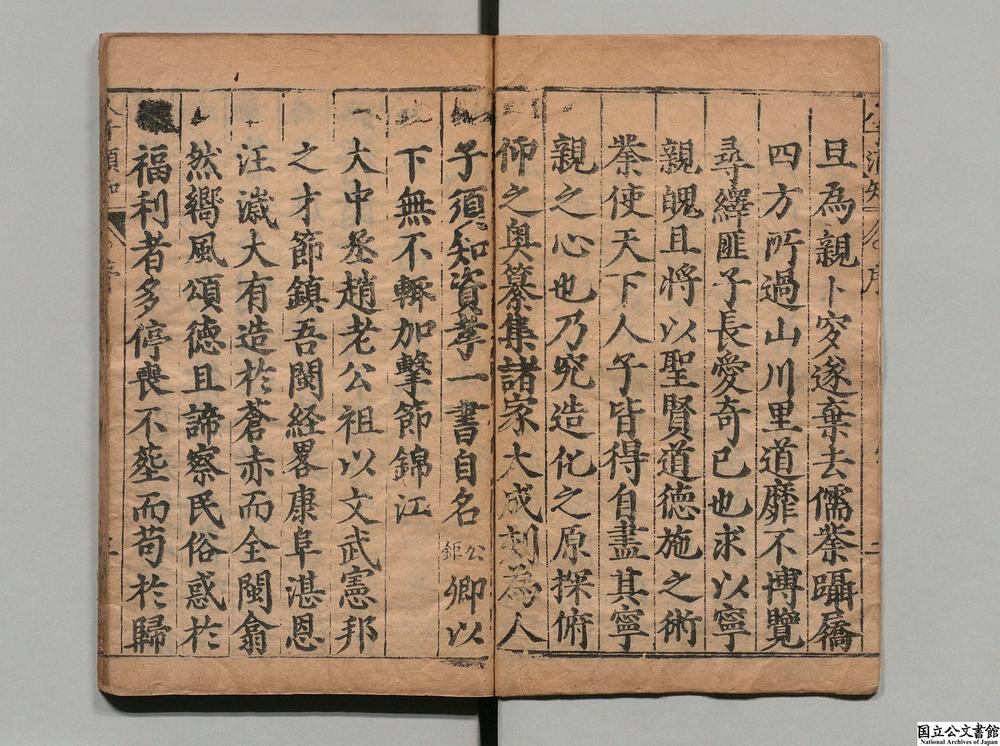 旦為親卜穸遂棄去儒業躡屩
四方所過山川里道靡不博覽
尋繹匪子長愛奇已也求以寧
親魄且將以聖賢道德施之術
業使天下人子皆得自盡其寧
親之心也乃究造化之原探俯
仰之奧纂集諸家大成刻為人
子須知資孝一書自名公鉅卿以
下無不輙加擊節錦江
大中丞趙老公祖以文武憲邦
之才節鎮吾閩経畧康阜湛恩
汪濊大有造於蒼赤而全閩翕
然嚮風頌德且諦察民俗惑於
福利者多停喪不塟而苟於歸
国立公文書館
National Archives of Japan